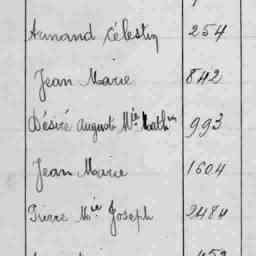 Armand Célestin 254
Jean Marie 842
Désiré Auguste Mie Math 993
Jean Marie 1604
Pierre Mie Joseph 2484